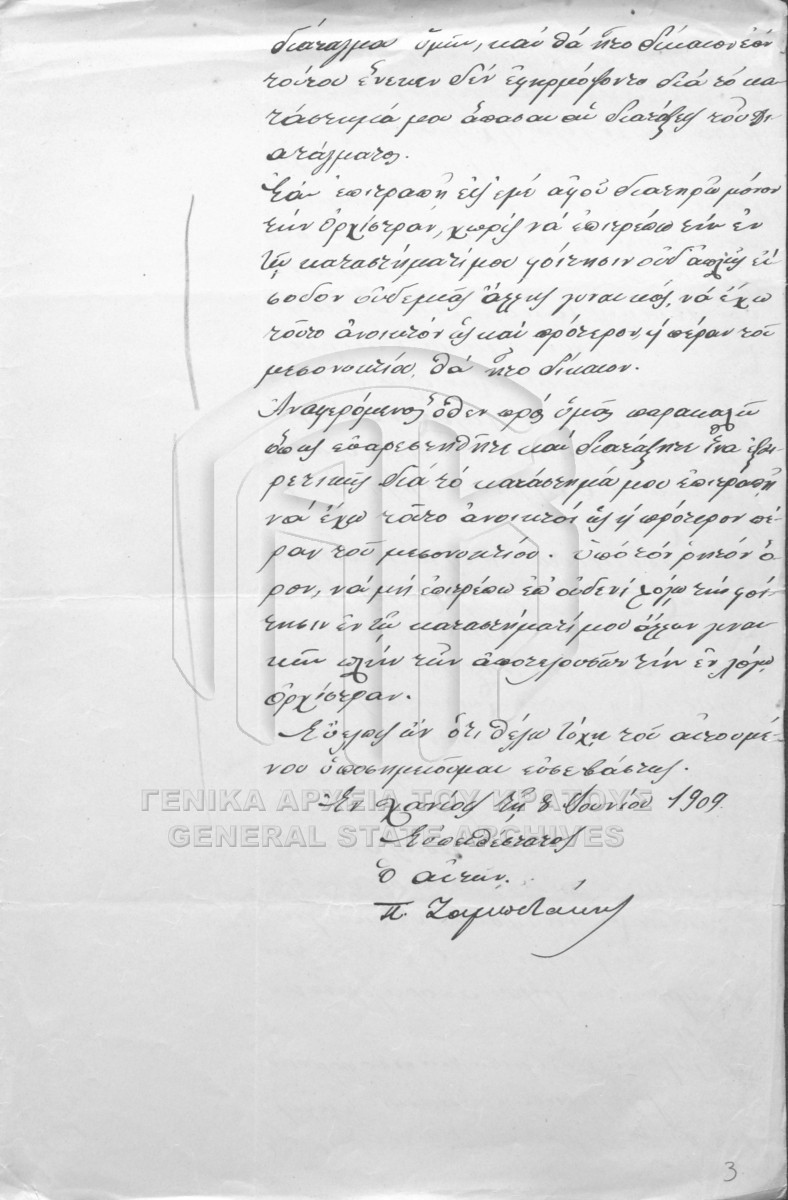 διάταγμα ὑμῶν, καὶ θὰ ἦτο δίκαιον ἐὰν
τούτου ἕνεκεν δὲν ἐφηρμόζοντο διὰ τὸ κα-
τάστημά μου ἅπασαι αἱ διατάξεις τοῦ δι-
ατάγματος.
Ἐὰν ἐπιτραπῇ εἰς ἐμὲ ἀφοῦ διατηρῶ μόνον
τὴν ὀρχήστραν, χωρὶς νὰ ἐπιτρέπω τὴν ἐν
τῷ καταστήματί μου φοίτησιν οὐδ' ἁπλῆς εἰ-
σοδον οὐδεμιᾶς ἄλλης γυναικός, νὰ ἔχω
τοῦτο ἀνοικτὸν ὡς καὶ πρότερον, ἢ πέραν τοῦ
μεσονυκτίου, θὰ ἦτο δίκαιον.
Ἀναφερόμενος ὅθεν πρὸς ὑμᾶς παρακαλῶ
ὅπως εὐαρεστηθῆτε καὶ διατάξητε ἵνα ἐξαι-
ρετικῶς διὰ τὸ κατάστημά μου ἐπιτραπῇ
νὰ ἔχω τοῦτο ἀνοικτὸν ὡς ἢ πρότερον πέ-
ραν τοῦ μεσονυκτίου. ὑπὸ τὸν ῥητὸν ὅ-
ρον, νὰ μὴ ἐπιτρέπω ἐπ' οὐδενὶ λόγῳ τὴν φοί-
τησιν ἐν τῷ καταστήματί μου ἄλλων γυναι-
κῶν πλὴν τῶν ἀποτελουσῶν τὴν ἐν λόγῳ
ὀρχήστραν.
Εὔελπις ὢν ὅτι θέλω τύχῃ τοῦ αἰτουμέ-
νου ὑποσημειοῦμαι εὐσεβάστως.
Ἐν Χανίοις τῇ 8 Ἰουνίου 1909
Εὐπειθέστατος
Ὁ αἰτῶν.
Π.
ΓΕΝΙΚΑ ΑΡΧΕΙΑ ΤΟΥ ΚΡΑΤΟΥΣ
GENERAL STATE ARCHIVES
3